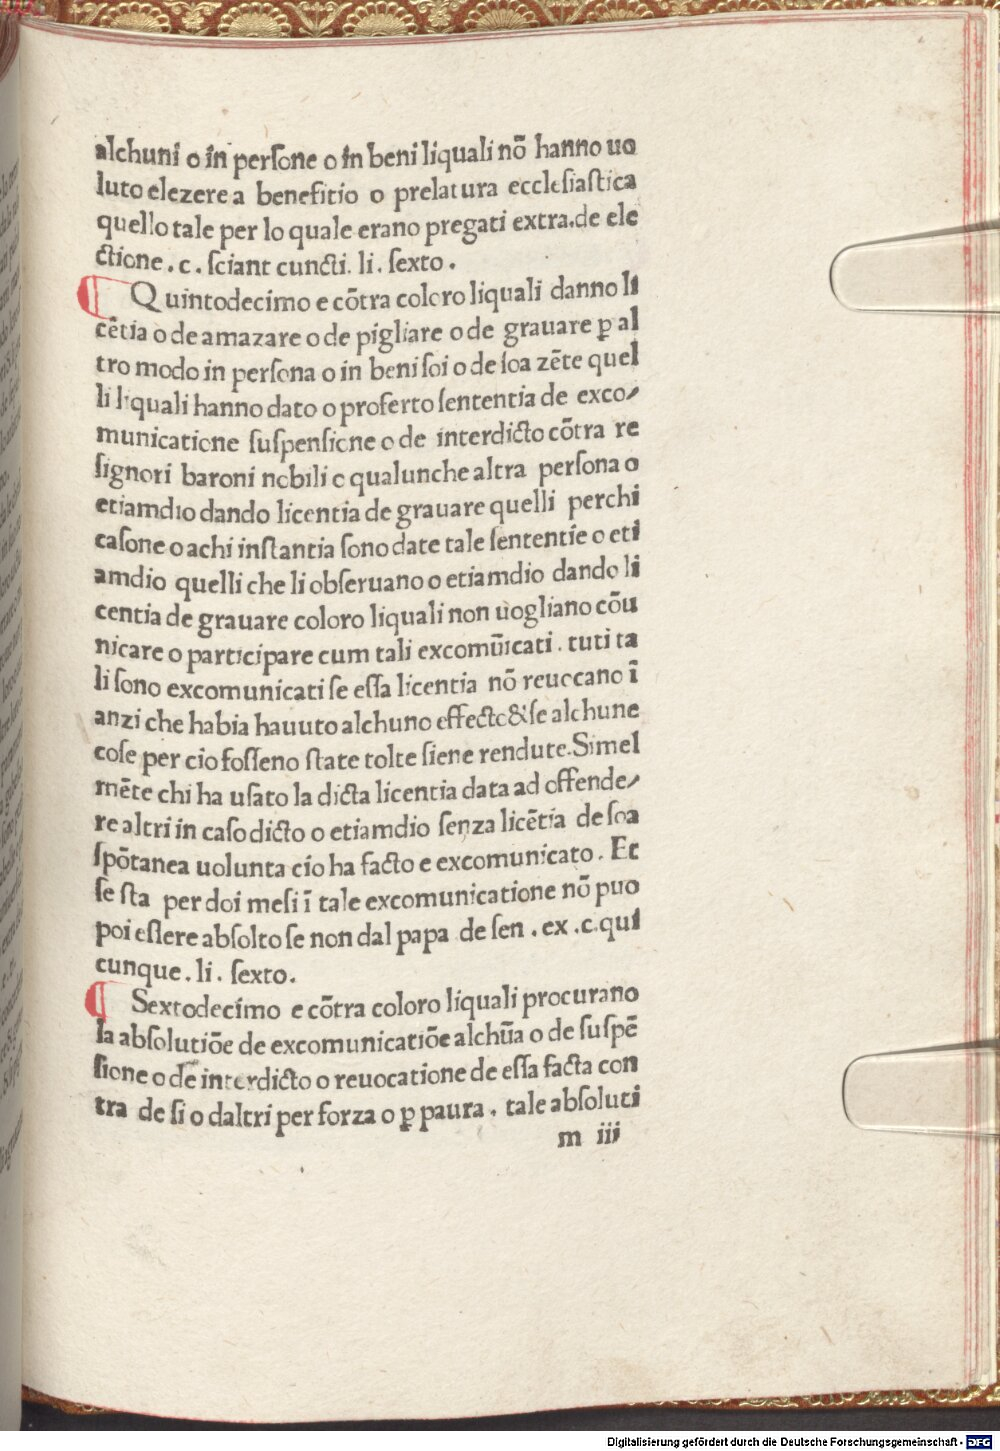 alchuni o in perſone o in beni liquali nõ hanno uo
luto elezere a benefitio o prelatura eccleſiaſtica
quello tale per lo quale erano pregati extra.de ele
ctione . c . ſciant cuncti. li . ſexto .
Quintodecimo e cõtra coloro liquali danno li
cẽtia o de amazare o de pigliare o de grauare ꝑ al
tro modo in perſona o in beni ſoi o de ſoa zẽte quel
li liquali hanno dato o proferto ſententia de exco⸗
municatione ſuſpenſione o de interdicto cõtra re
ſignori baroni nobili e qualunche altra perſona o
etiamdio dando licentia de grauare quelli perchi
caſone o achi inſtantia ſono date tale ſententie o eti
amdio quelli che li obſeruano o etiamdio dando li
centia de grauare coloro liquali non uogliano cõu
nicare o participare cum tali excomũicati . tuti ta
li ſono excomunicati ſe eſſa licentia nõ reuocano ĩ
anzi che habia hauuto alchuno effecto & ſe alchune
coſe per cio foſſeno ſtate tolte ſiene rendute.Simel
mẽte chi ha uſato la dicta licentia data ad offende⸗
re altri in caſo dicto o etiamdio ſenza licẽtia de ſoa
ſpõtanea uolunta cio ha facto e excomunicato . Et
ſe ſta per doi meſi ĩ tale excomunicatione nõ puo
poi eſſere abſolto ſe non dal papa de ſen . ex . c. qui
cunque . li . ſexto .
Sextodecimo e cõtra coloro liquali procurano
la abſolutiõe de excomunicatiõe alchũa o de ſuſpẽ
ſione o de interdicto o reuocatione de eſſa facta con
tra de ſi o daltri per forza o ꝑ paura . tale abſoluti
m iii
Digitalisierung gefördert durch die Deutsche Forschungsgemeinschaft - DFG